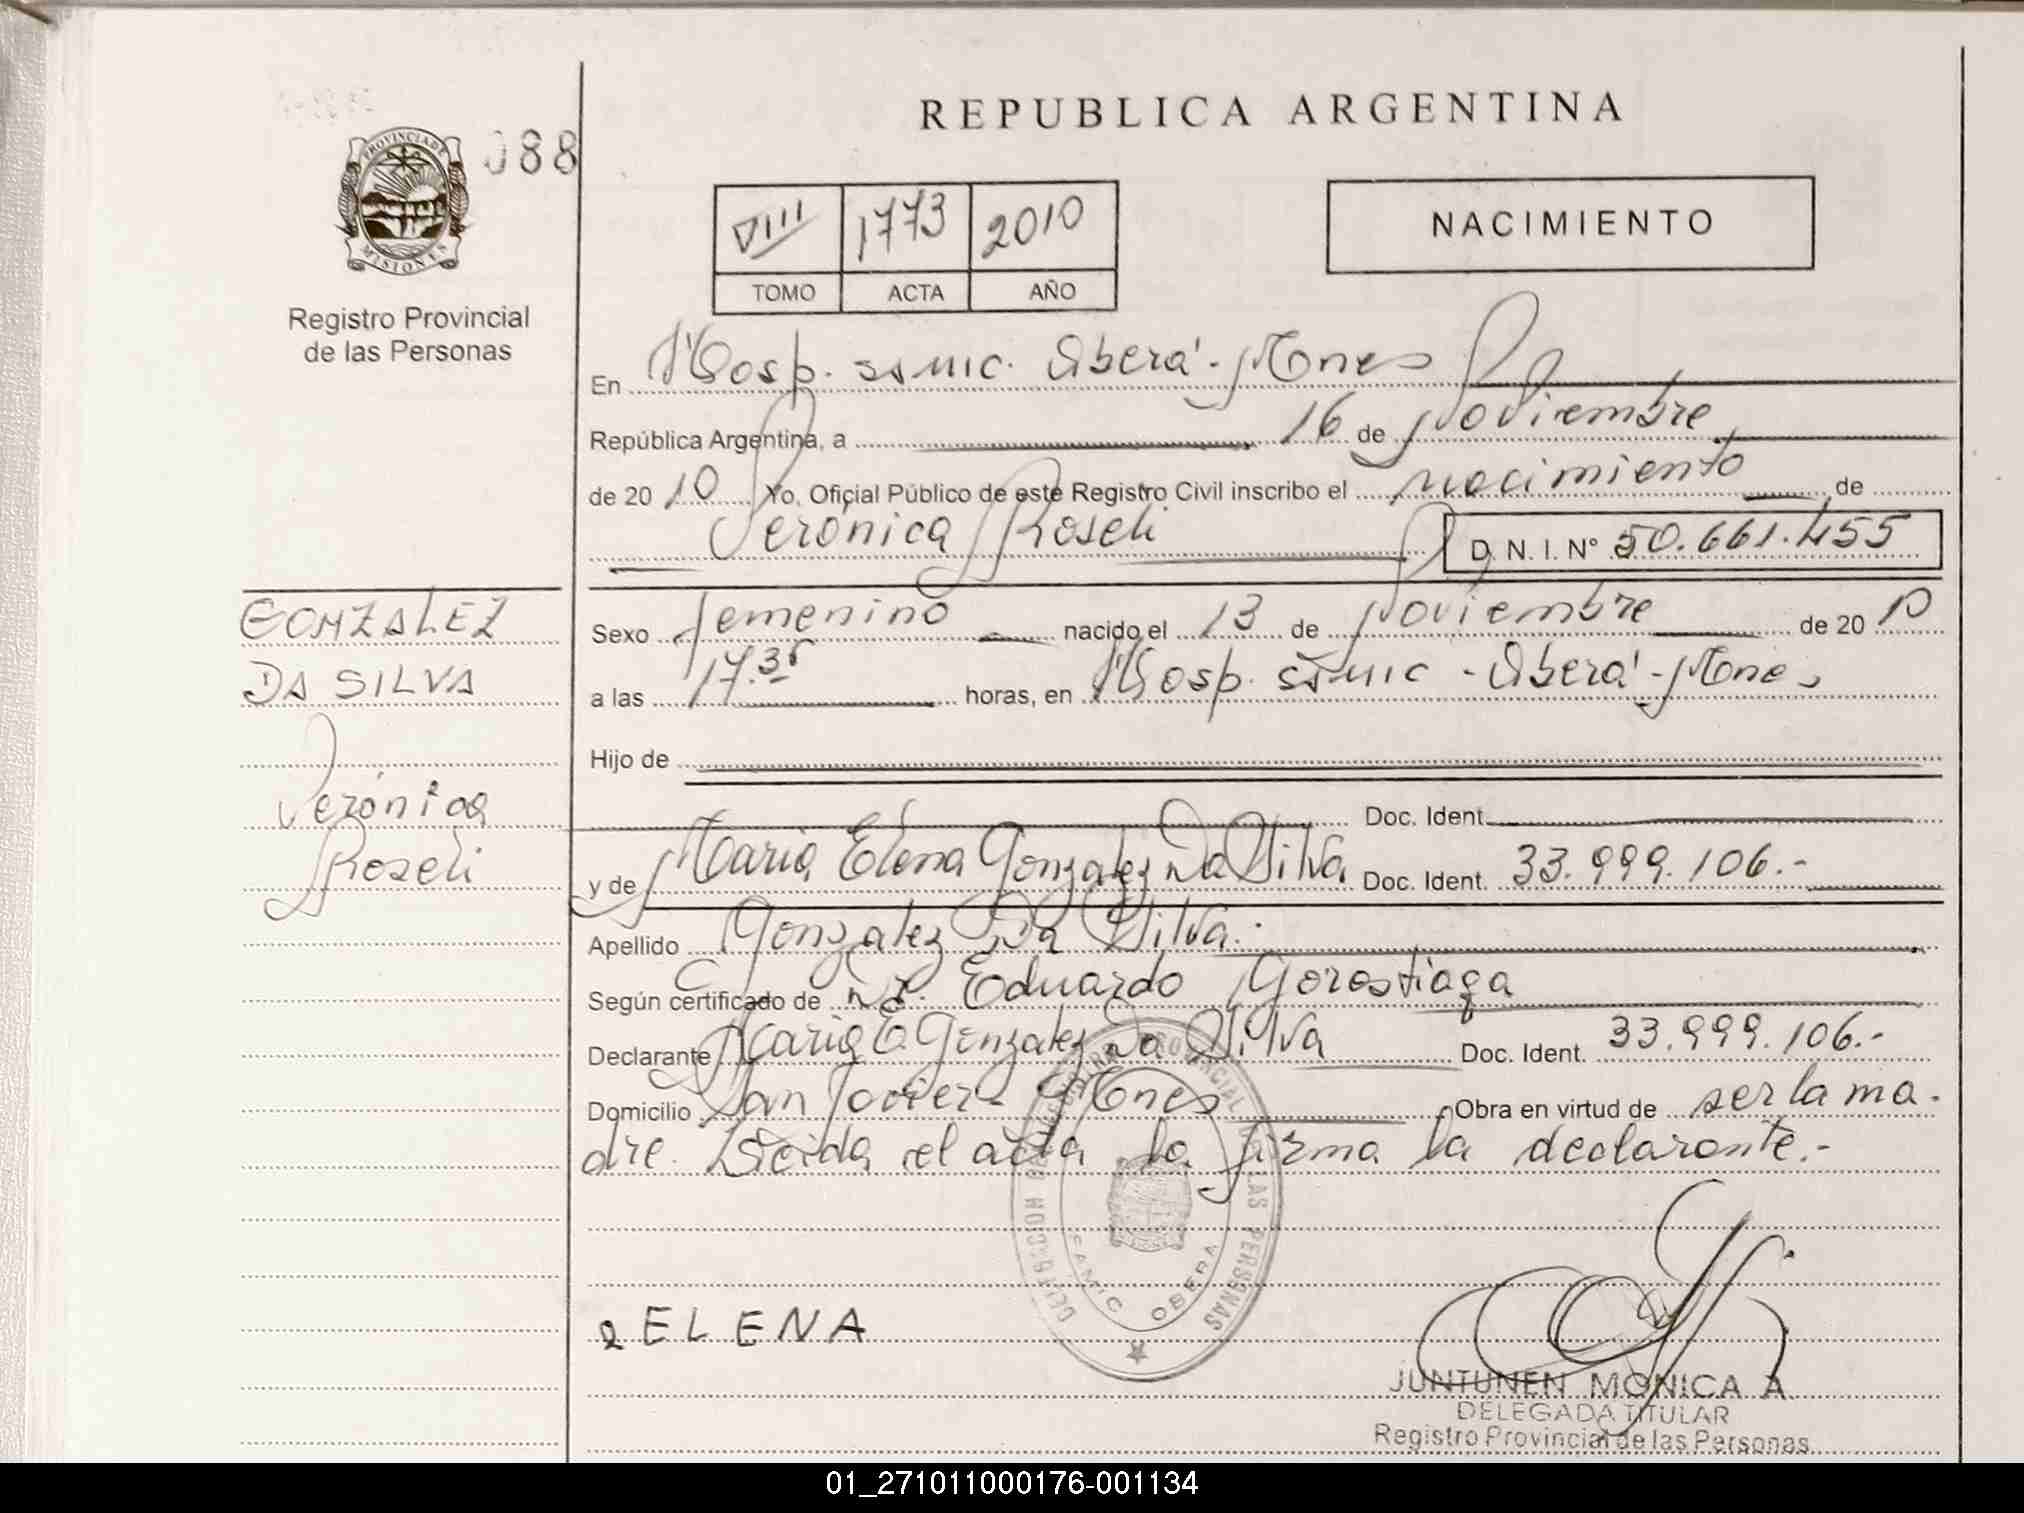 REPUBLICA ARGENTINA
PROVINCIA DE
MISIONES
088
Registro Provincial
de las Personas
VIII 1773 2010
TOMO ACTA AÑO
NACIMIENTO
En Hosp. SAMIC. Oberá - Mones
República Argentina, a 16 de Noviembre
de 20 10 Yo, Oficial Público de este Registro Civil inscribo el nacimiento de
Verónica Roseli D. N. I. N° 50.661.455
GONZALEZ
DA SILVA
Verónica
Roseli
Sexo femenino nacido el 13 de Noviembre de 20 10
a las 17.35 horas, en Hosp. SAMIC - Oberá - Mones
Hijo de
Doc. Ident.
y de Maria Elena Gonzalez Da Silva Doc. Ident. 33.999.106.-
Apellido Gonzalez Da Silva.-
Según certificado de Dr. Eduardo Gorostiaga
Declarante Maria E. Gonzalez Da Silva Doc. Ident. 33.999.106.-
Domicilio San Javier - Mones Obra en virtud de ser la ma-
dre. Leida el acta la firma la declarante.-
PROVINCIAL DE LAS PERSONAS
SAMIC OBERA
ELENA
JUNTUNEN MONICA A.
DELEGADA TITULAR
Registro Provincial de las Personas
01_271011000176-001134